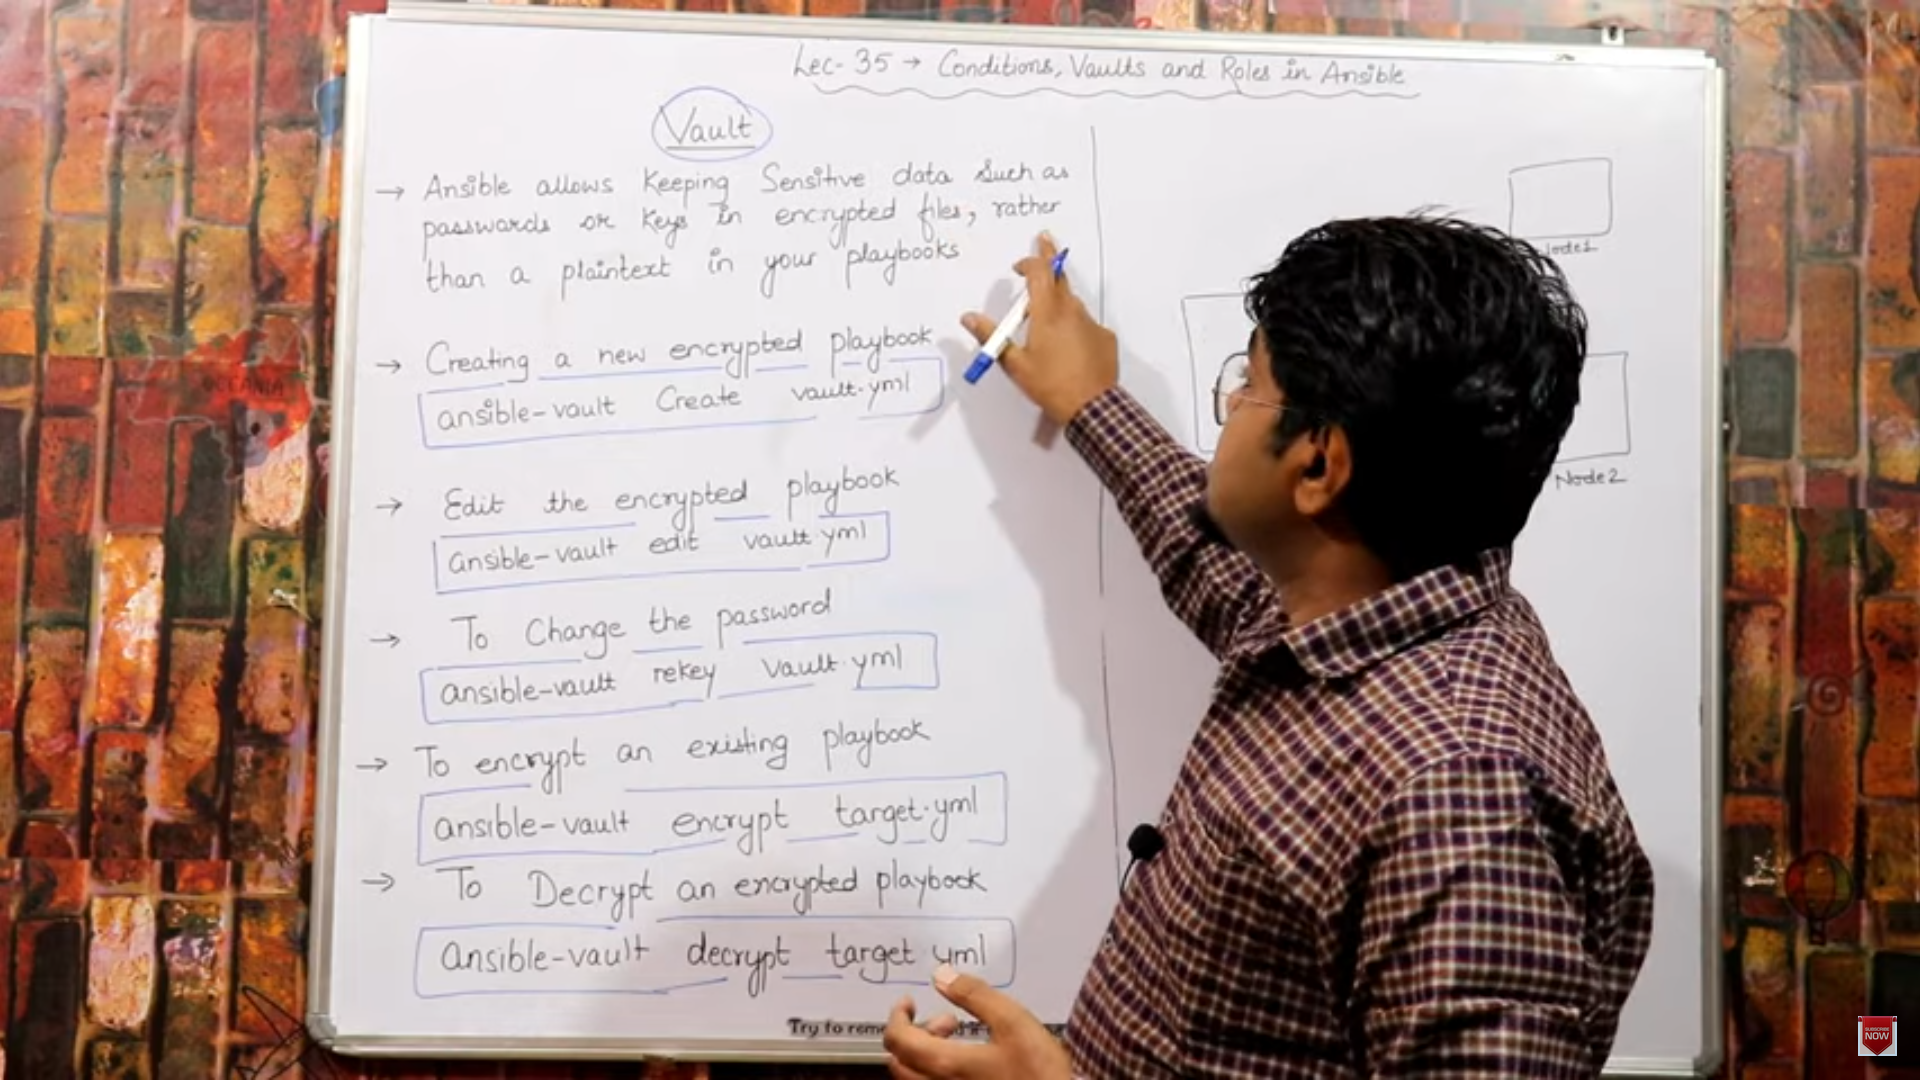 Lec- 35 → Conditions, Vaults and Roles in Ansible
Vault
→ Ansible allows Keeping Sensitive data Such as
passwords or Keys in encrypted files, rather
than a plaintext in your playbooks
→ Creating a new encrypted playbook
ansible-vault Create vault.yml
→ Edit the encrypted playbook
ansible-vault edit vault.yml
→ To Change the password
ansible-vault rekey vault.yml
→ To encrypt an existing playbook
ansible-vault encrypt target.yml
→ To Decrypt an encrypted playbook
ansible-vault decrypt target yml
Node2
Try to
SUBSCRIBE
NOW